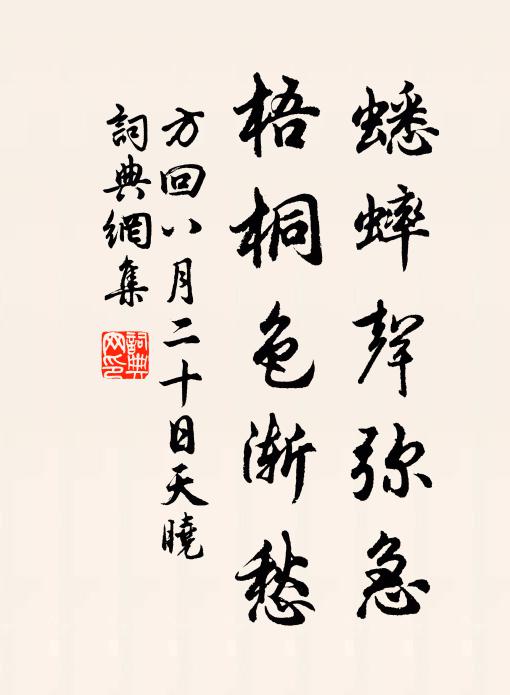 蟋蟀聲弥急
梧桐色漸愁
方回八月二十日天曉
詞典網集
詞典網印